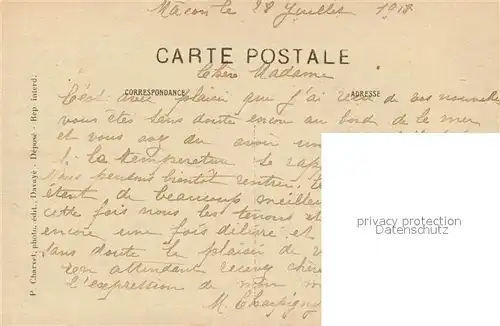 Macon le 28 Juillet 1918
CARTE POSTALE
Chère Madame
CORRESPONDANCE
ADRESSE
C'est avec plaisir que j'ai reçu de vos nouvelles
vous êtes sans doute encore au bord de la mer
et vous avez du avoir un
si la temperature se
Nous pensons bientôt rentrer.
étant de beaucoup meilleur
cette fois nous les tenons et
encore une fois délivré et
sans doute le plaisir de v
en attendant recevez chère
l'expression de mon
M. Champigny
P. Charvet, photo. édit., Davayé. - Déposé - Rep. interd.
privacy protection